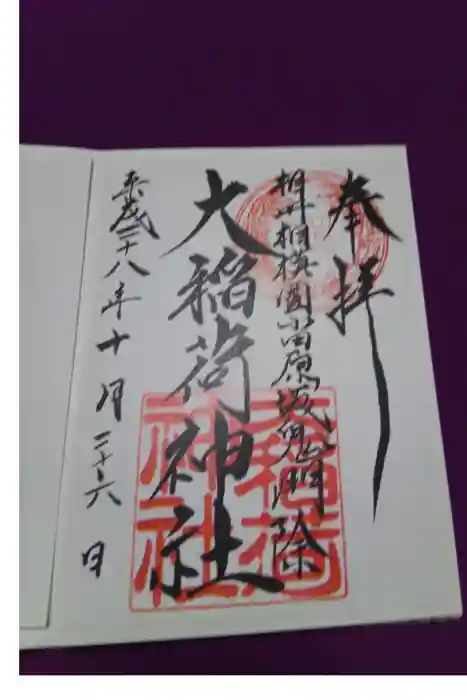 奉拝
相州相模国小田原城鬼門除
大稲荷神社
平成二十八年十月二十六日
大稲荷
神社